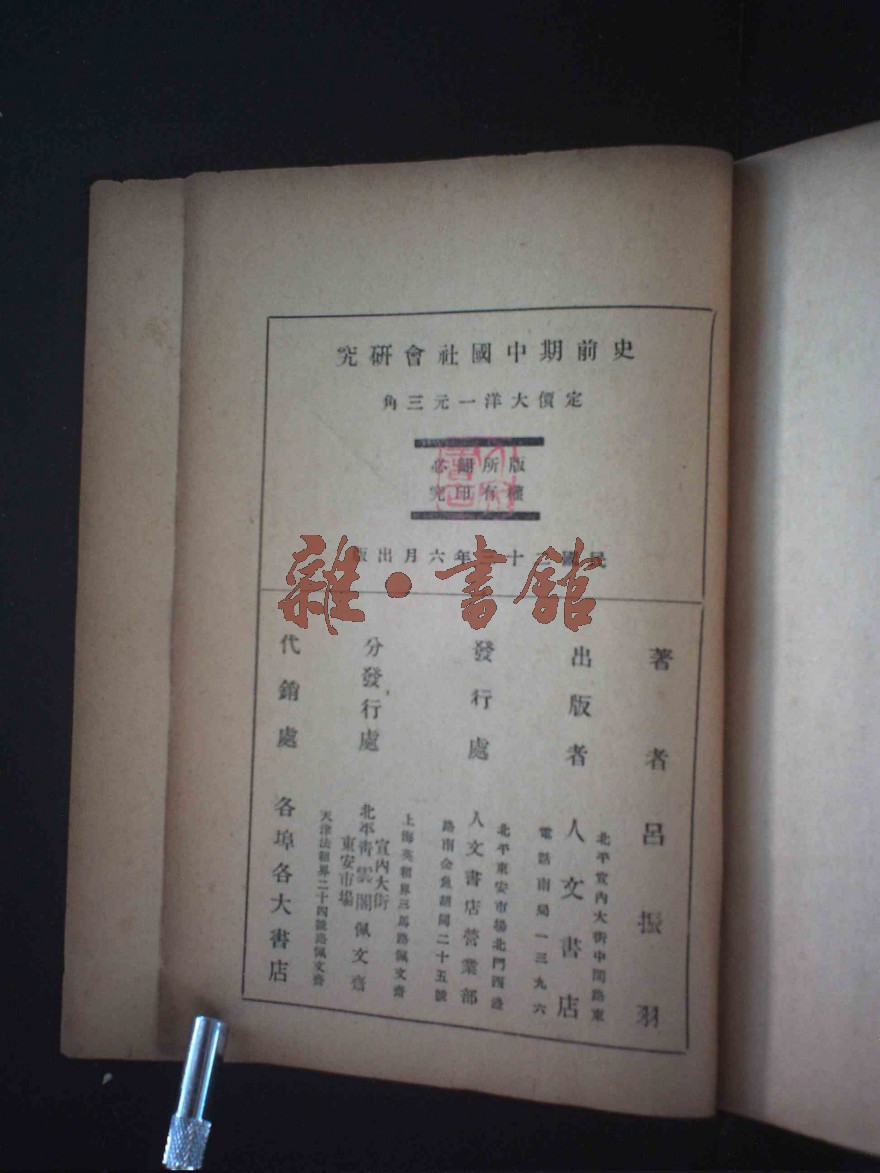 史前期中國社會研究
定價大洋一元三角
版所翻必
權有印究
民國二十三年六月出版
雜·書館
著者 呂振羽
北平宣內大街中間路東
出版者 人文書店
電話南局一三九六
北平東安市場北門西邊
發行處 人文書店營業部
路南金魚胡同二十五號
上海英租界三馬路佩文齋
宣內大街
分發行處 北平青雲閣佩文齋
東安市場
天津法租界二十四號路佩文齋
代銷處 各埠各大書店